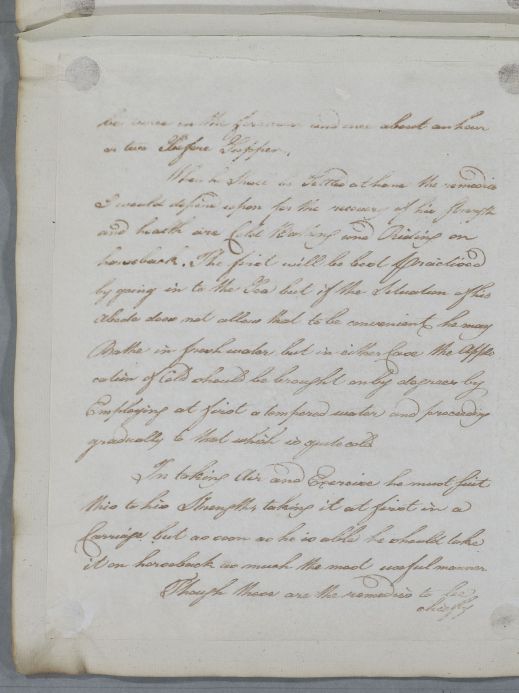 be twice in the forenoon and once about an hour
or two before Supper.
When he shall be Settled at home the remedies
I would depend upon for the recovery of his Strength
and health are Cold Bathing and Riding on
horseback. The first will be best practised
by going in to the Sea but if the Situation of his
abode does not allow that to be convenient he may
Bathe in fresh water but in either Case the Appli
cation of Cold should be brought on by degrees by
Employing at first a tempered water and proceeding
gradually to that which is quite cold
In taking Air and Exercise he must suit
this to his Strength, taking it at first in a
Carriage but as soon as he is able he should take
it on horseback as much the most useful manner
Though these are the remedies to be
chiefly